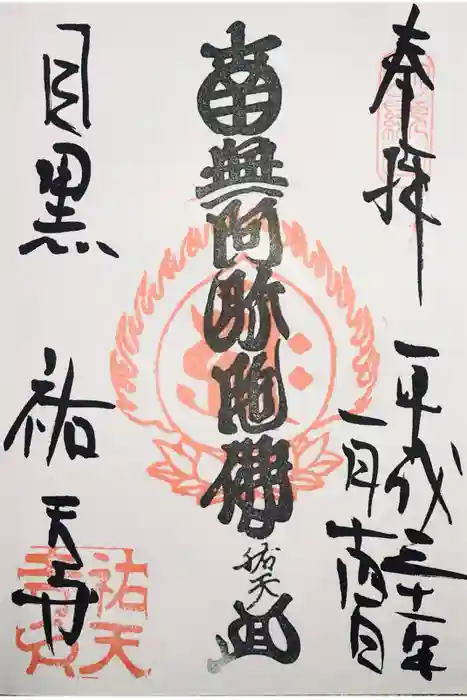 奉拝
平成三十一年
一月
南無阿弥陀佛
祐天
目黒
祐天寺
祐天